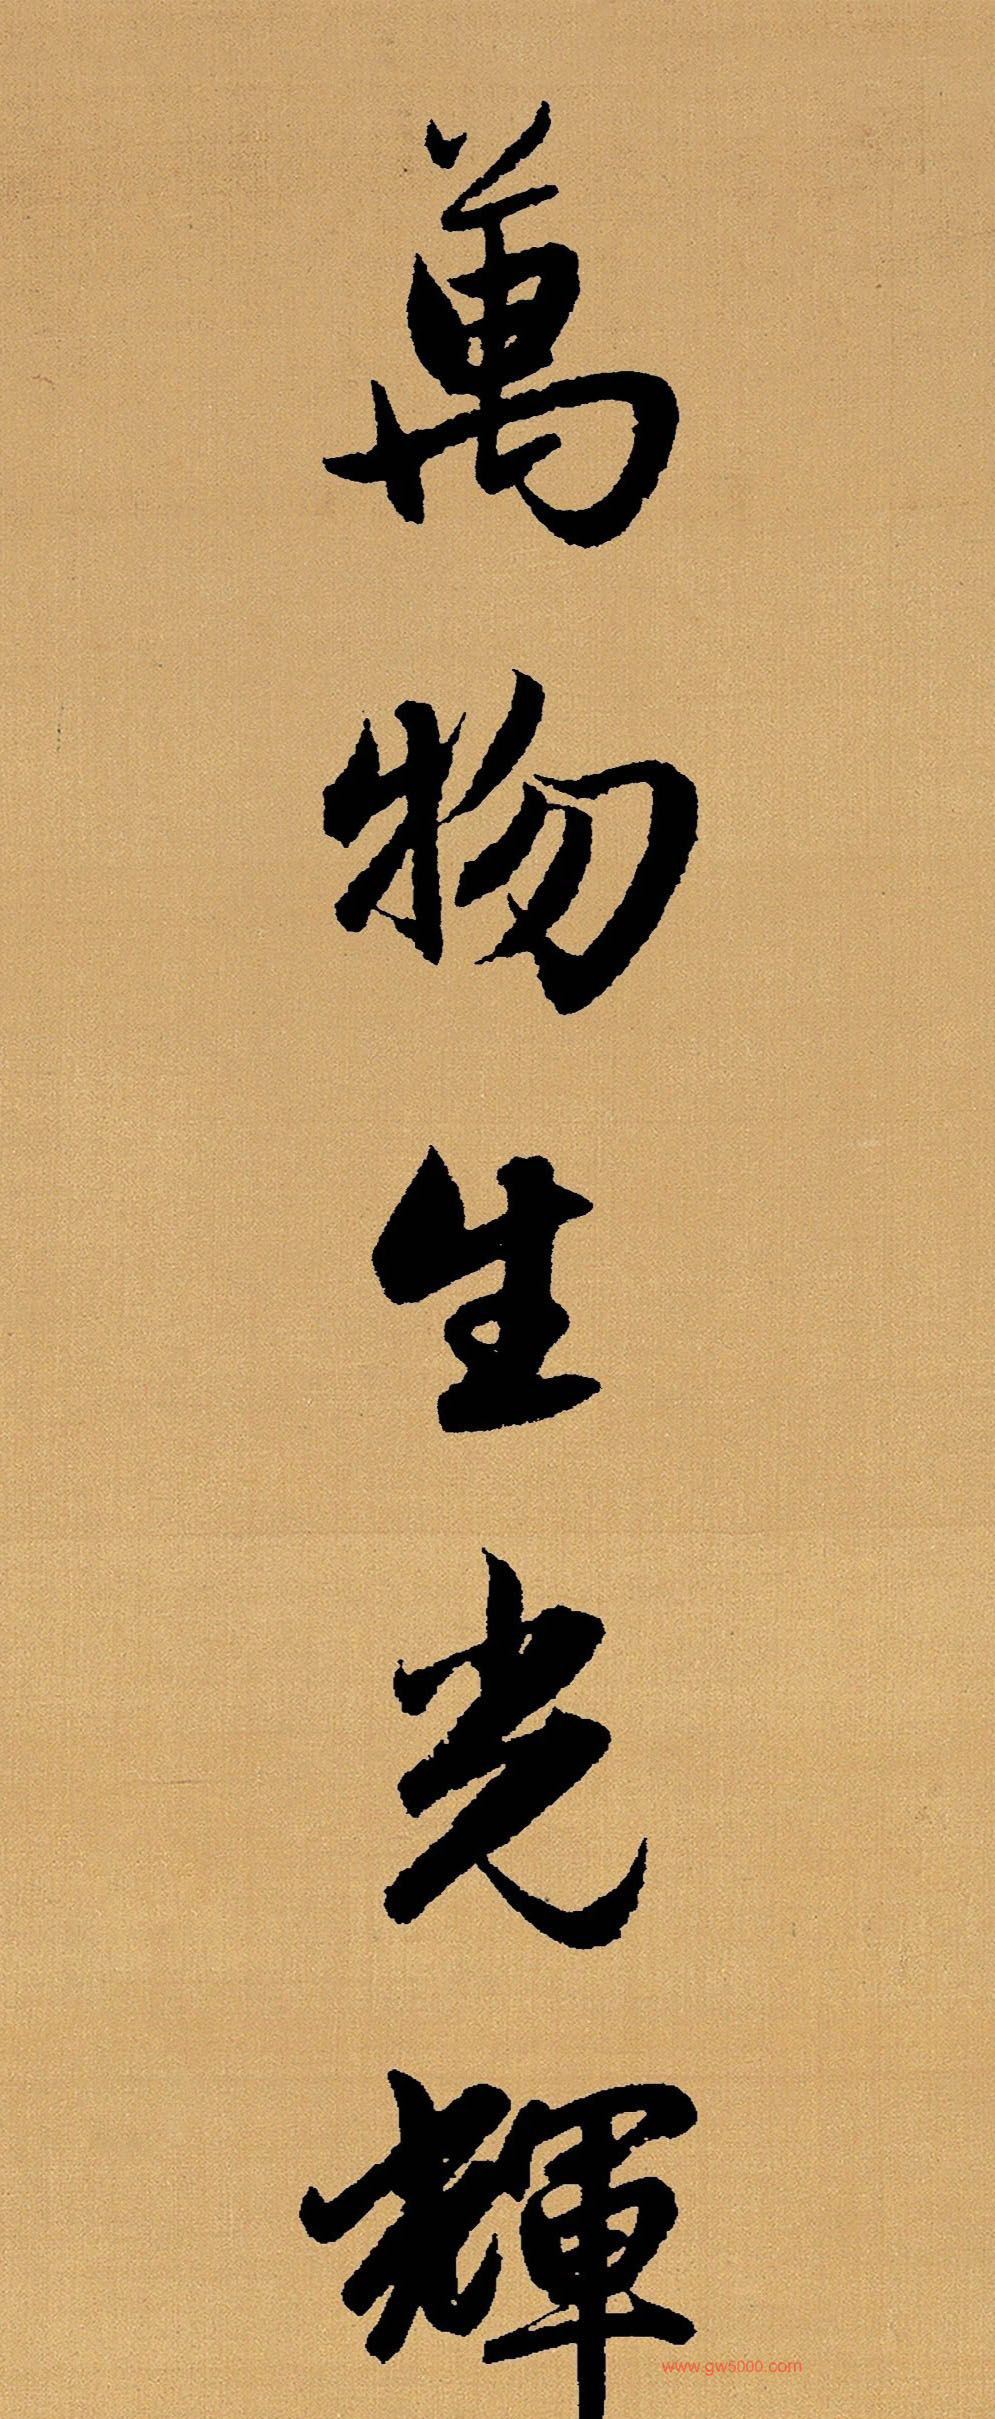 萬物生光輝
www.gw5000.com